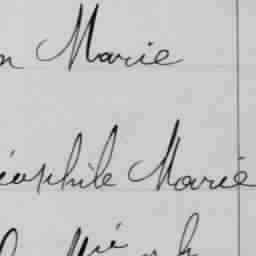 n Marie
éophile Marie